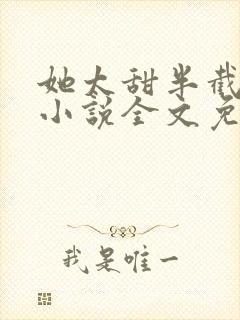 她太甜半截
小说全文免
我是唯一